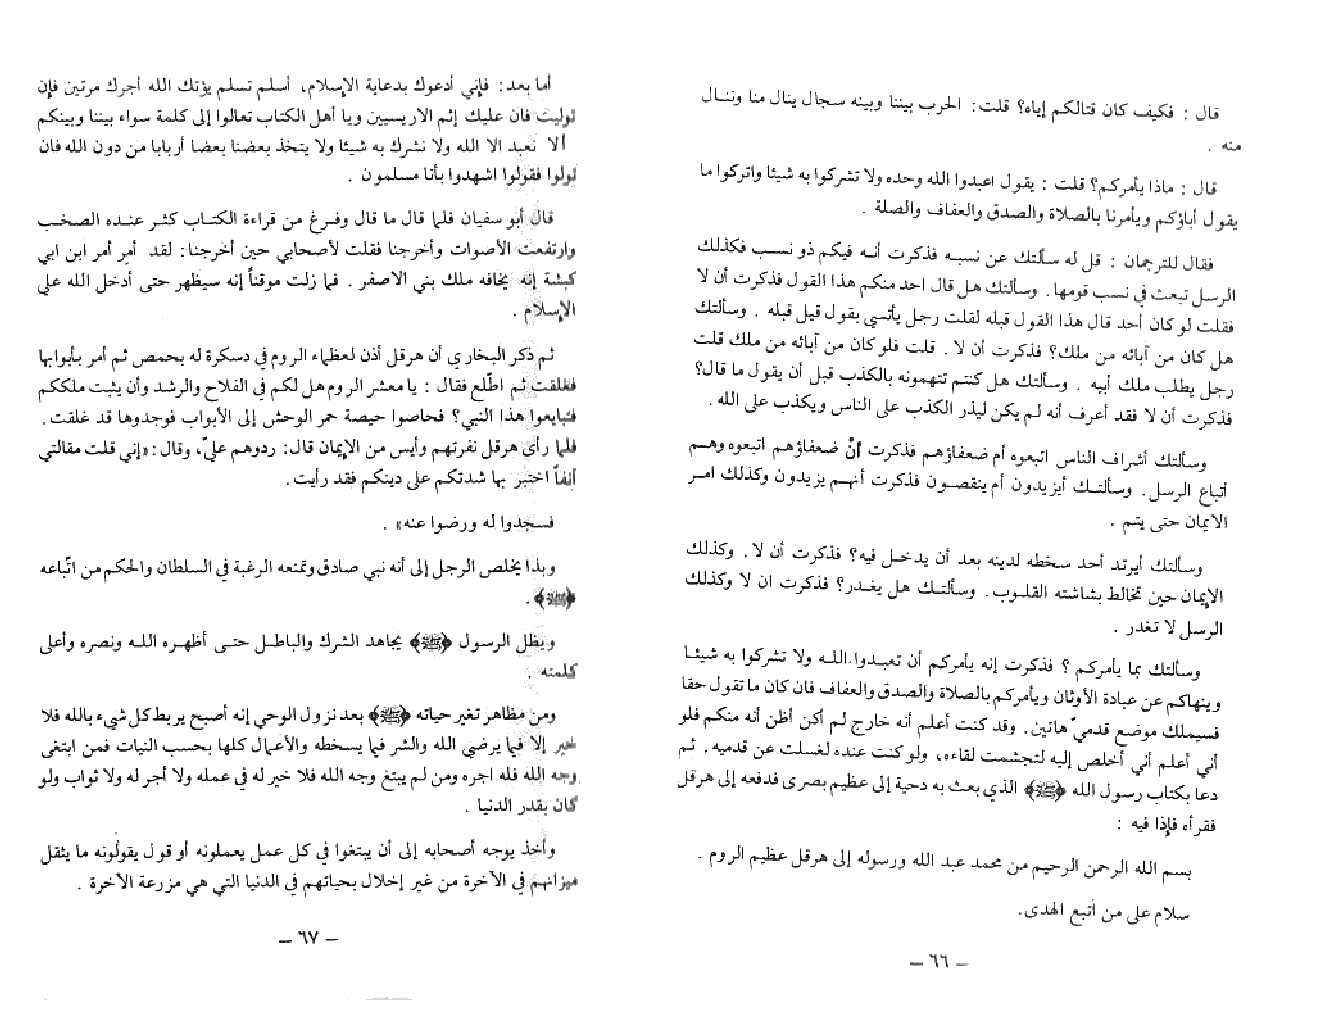 قال : فكيف كان قتالكم إياه؟ قلت : الحرب بيننا وبينه سجال ينال منا وننال
منه .
قال : ماذا يأمركم؟ قلت : يقول اعبدوا الله وحده ولا تشركوا به شيئا واتركوا ما
يقول أباؤكم ويأمرنا بالصلاة والصدق والعفاف والصلة .
فقال للترجمان : قل له سألتك عن نسبه فذكرت أنه فيكم ذو نسب فكذلك
الرسل تبعث في نسب قومها . وسألتك هل قال احد منكم هذا القول فذكرت أن لا
فقلت لو كان أحد قال هذا القول قبله لقلت رجل يأتسي بقول قيل قبله . وسألتك
هل كان من أبائه من ملك؟ فذكرت أن لا . قلت فلو كان من آبائه من ملك قلت
رجل يطلب ملك أبيه . وسألتك هل كنتم تتهمونه بالكذب قبل أن يقول ما قال؟
فذكرت أن لا فقد أعرف أنه لم يكن ليذر الكذب على الناس ويكذب على الله .
وسألتك أشراف الناس اتبعوه أم ضعفاؤهم فذكرت أنّ ضعفاؤهم اتبعوه وهم
أتباع الرسل . وسألتك أيزيدون أم ينقصون فذكرت أنهم يزيدون وكذلك امر
الايمان حتى يتم .
وسألتك أيرتد أحد سخطه لدينه بعد أن يدخل فيه؟ فذكرت أن لا . وكذلك
الإيمان حين تخالط بشاشته القلوب . وسألتك هل يغدر؟ فذكرت ان لا وكذلك
الرسل لا تغدر .
وسألتك بما يأمركم ؟ فذكرت إنه يأمركم أن تعبدوا الله ولا تشركوا به شيئا
وينهاكم عن عبادة الأوثان ويأمركم بالصلاة والصدق والعفاف فان كان ما تقول حقا
فسيملك موضع قدميّ هاتين . وقد كنت أعلم أنه خارج لم أكن أظن أنه منكم فلو
أني أعلم أني أخلص إليه لتجشمت لقاءه، ولو كنت عنده لغسلت عن قدميه . ثم
دعا بكتاب رسول الله ﴿ﷺ﴾ الذي بعث به دحية إلى عظيم بصرى فدفعه إلى هرقل
فقرأه فإذا فيه :
بسم الله الرحمن الرحيم من محمد عبد الله ورسوله إلى هرقل عظيم الروم .
سلام على من أتبع الهدى.
— ٦٦ —
أما بعد : فإني أدعوك بدعاية الإسلام، أسلم تسلم يؤتك الله أجرك مرتين فإن
توليت فان عليك إثم الاريسيين ويا أهل الكتاب تعالوا إلى كلمة سواء بيننا وبينكم
ألا نعبد الا الله ولا نشرك به شيئا ولا يتخذ بعضنا بعضا أربابا من دون الله فان
تولوا فقولوا اشهدوا بأنا مسلمون .
قال أبو سفيان فلما قال ما قال وفرغ من قراءة الكتاب كثر عنده الصخب
وارتفعت الأصوات وأخرجنا فقلت لأصحابي حين أخرجنا : لقد أمر أمر ابن ابي
كبشة إنه يخافه ملك بني الاصفر . فما زلت موقناً إنه سيظهر حتى أدخل الله علي
الإسلام .
ثم ذكر البخاري أن هرقل أذن لعظماء الروم في دسكرة له بحمص ثم أمر بأبوابها
فغلقت ثم اطّلع فقال : يا معشر الروم هل لكم في الفلاح والرشد وأن يثبت ملككم
فتبايعوا هذا النبي؟ فحاصوا حيصة حمر الوحش إلى الأبواب فوجدوها قد غلقت .
فلما رأى هرقل نفرتهم وأيس من الإيمان قال : ردوهم عليّ، وقال : «إني قلت مقالتي
أنفاً اختبر بها شدتكم على دينكم فقد رأيت .
فسجدوا له ورضوا عنه» .
وبذا يخلص الرجل إلى أنه نبي صادق وتمنعه الرغبة في السلطان والحكم من اتّباعه
﴿ﷺ﴾ .
ويظل الرسول ﴿ﷺ﴾ يجاهد الشرك والباطل حتى أظهره الله ونصره وأعلى
كلمته .
ومن مظاهر تغير حياته ﴿ﷺ﴾ بعد نزول الوحي إنه أصبح يربط كل شيء بالله فلا
خير إلا فيما يرضي الله والشر فيما يسخطه والأعمال كلها بحسب النيات فمن ابتغى
وجه الله فله اجره ومن لم يبتغ وجه الله فلا خير له في عمله ولا أجر له ولا ثواب ولو
كان بقدر الدنيا .
وأخذ يوجه أصحابه إلى أن يبتغوا في كل عمل يعملونه أو قول يقولونه ما يثقل
ميزانهم في الآخرة من غير إخلال بحياتهم في الدنيا التي هي مزرعة الآخرة .
— ٦٧ —